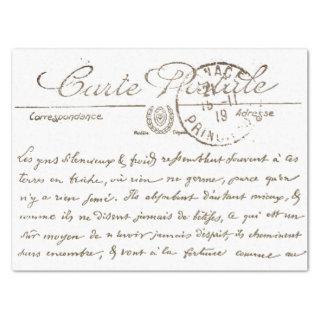 Carte Postale
Correspondance
Adresse
15-11
19
Les gens silencieux & froids ressemblent souvent à ces
terres en friche, où rien ne germe, parce qu'on
n'y a rien semé. Ils absorbent d'autant mieux, &
comme ils ne disent jamais de bêtises, ce qui est un
sûr moyen de n'avoir jamais d'esprit, ils cheminent
sans encombre, & vont à la fortune comme au